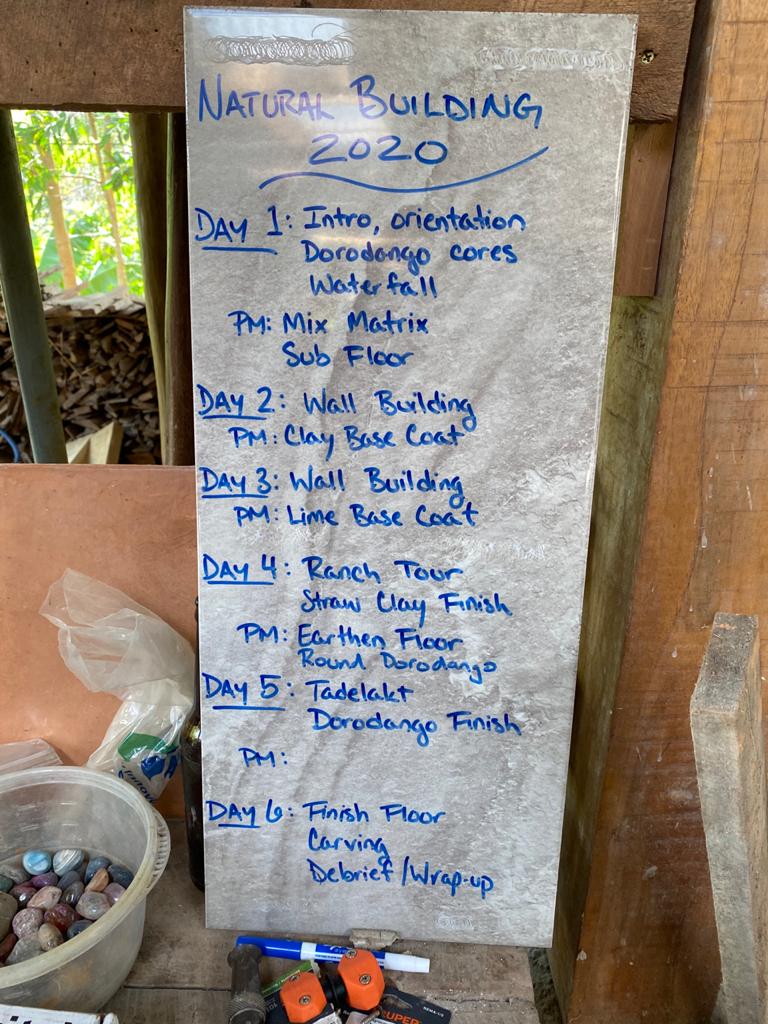 NATURAL BUILDING
2020
DAY 1: Intro, orientation
Dorodango cores
Waterfall
PM: Mix Matrix
Sub Floor
DAY 2: Wall Building
PM: Clay Base Coat
DAY 3: Wall Building
PM: Lime Base Coat
DAY 4: Ranch Tour
Straw Clay Finish
PM: Earthen Floor
Round Dorodango
DAY 5: Tadelakt
Dorodango Finish
PM:
DAY 6: Finish Floor
Carving
Debrief/Wrap-up